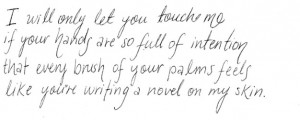 I will only let you touch me
if your hands are so full of intention
that every brush of your palms feels
like you're writing a novel on my skin.